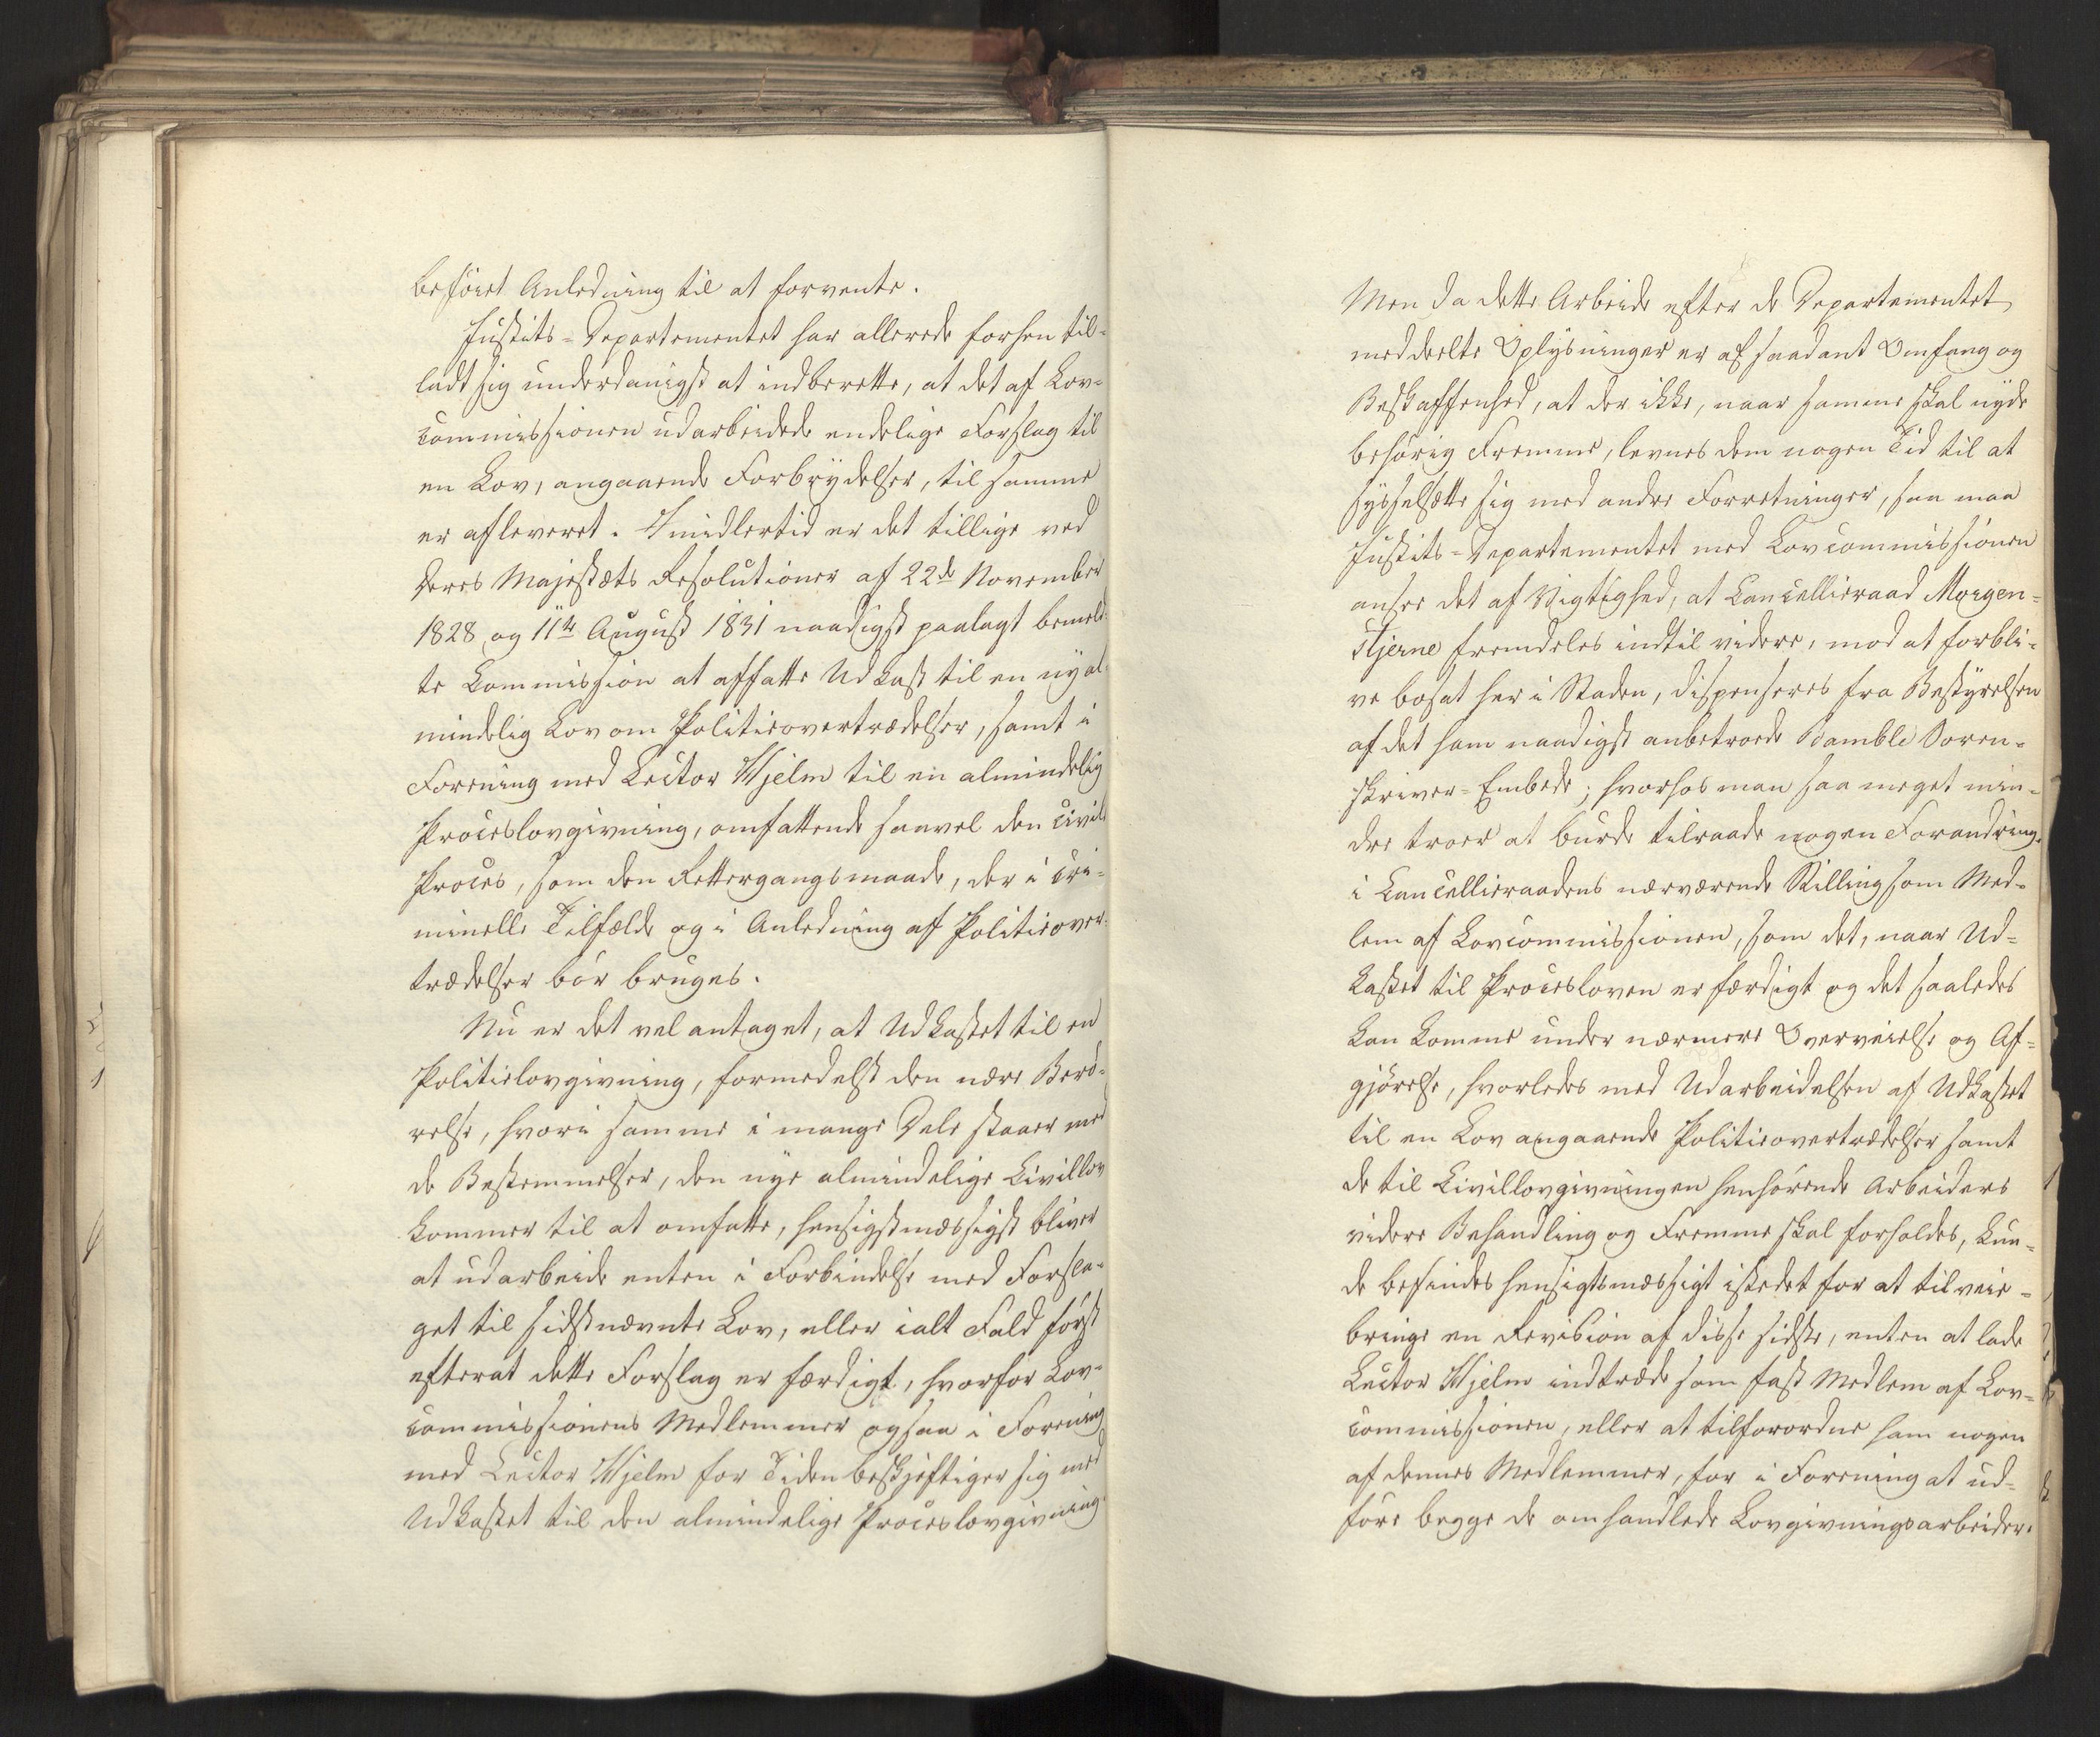 beføiet Anledning til at forvente.
Justits-Departementet har allerede forhen til-
ladt sig underdanigst at indberette, at det af Lov-
commissionen udarbeidede endelige Forslag til
en Lov, angaaende Forbrydelser, til samme
er afleveret. Imidlertid er det tillige ved
Deres Majestæts Resolutioner af 22de November
1828 og 11te August 1831 naadigst paalagt bemeld-
te Commission at affatte Udkast til en ny al-
mindelig Lov om Politieovertrædelser, samt i
Forening med Lector Hjelm til en almindelig
Proceslovgivning, omfattende saavel den civile
Proces, som den Rettergangsmaade, der i cri-
minelle Tilfælde og i Anledning af Politieover-
trædelser bør bruges.
Nu er det vel antaget, at Udkastet til en
Politielovgivning, formedelst den nære Berø-
relse, hvori samme i mange Dele staaer med
de Bestemmelser, den nye almindelige Civillov
kommer til at omfatte, hensigstmæssigst bliver
at udarbeide enten i Forbindelse med Forsla-
get til sidstnævnte Lov, eller ialt Fald først
efterat dette Forslag er færdigt, hvorfor Lov-
commissionens Medlemmer ogsaa i Forening
med Lector Hjelm for Tiden beskjeftiger sig med
Udkastet til den almindelige Proceslovgivning.
Men da dette Arbeide efter de Departementet
meddeelte Oplysninger er af saadant Omfang og
Beskaffenhed, at der ikke, naar samme skal nyde
behørig Fremme, levnes dem nogen Tid til at
sysselsætte sig med andre Forretninger, saa maa
Justits-Departementet med Lovcommissionen
ansee det af Vigtighed, at Cancellieraad Morgen-
stjerne fremdeles indtil videre, mod at forbli-
ve bosat her i Staden, dispenseres fra Bestyrelsen
af det ham naadigst anbetroede Bamble Soren-
skriver-Embede; hvorhos man saa meget min-
dre troer at burde tilraade nogen Forandring
i Cancellieraadens nærværende Stilling som Med-
lem af Lovcommissionen, som det, naar Ud-
kastet til Procesloven er færdigt og det saaledes
kan komme under nærmere Overveielse og Af-
gjørelse, hvorledes med Udarbeidelsen af Udkastet
til en Lov angaaende Politieovertrædelser samt
de til Civillovgivningen henhørende Arbeiders
videre Behandling og Fremme skal forholdes, kun-
de befindes hensigtsmæssigt istedet for at tilveie-
bringe en Revision af disse sidste, enten at lade
Lector Hjelm indtræde som fast Medlem af Lov-
commissionen, eller at tilforordne ham nogen
af dennes Medlemmer, for i Forening at ud-
føre begge de omhandlede Lovgivningsarbeider.